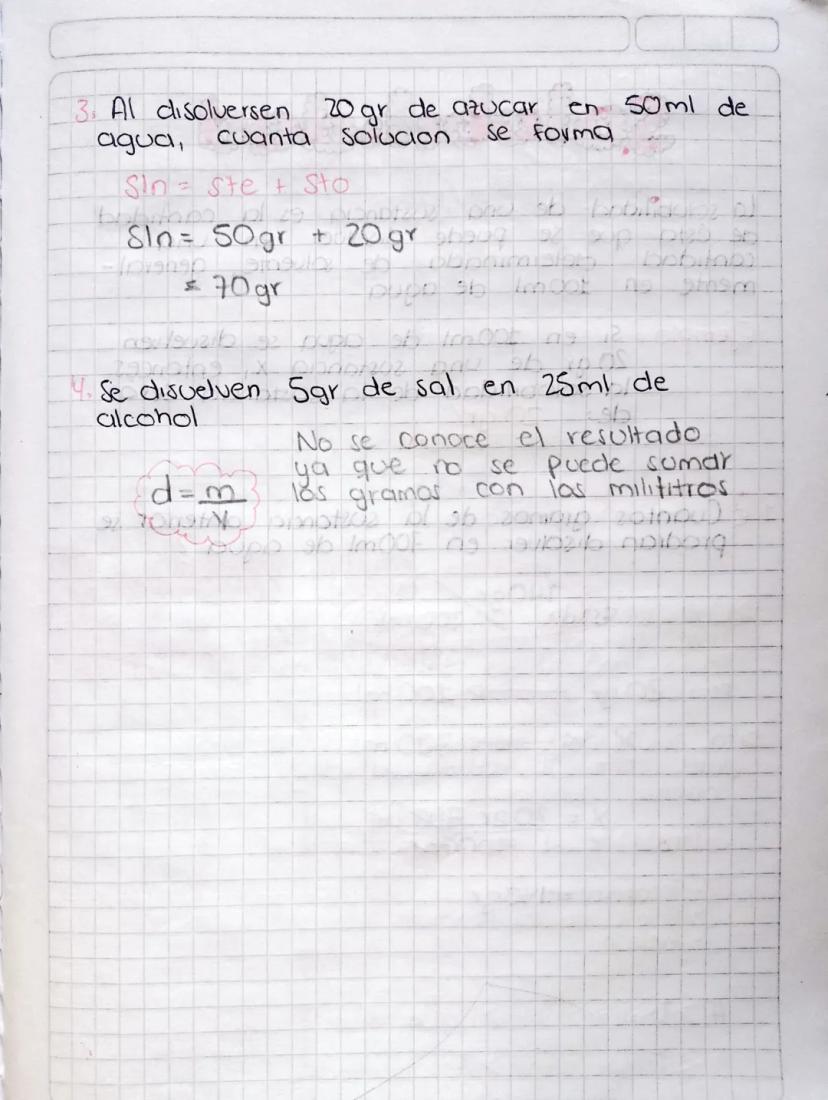 3. Al disolversen 20gr de azucar en 50ml de
agua, cuanta solucion se forma.
Sln = Ste + Sto
Sln = 50gr + 20gr
= 70gr
4. Se disuelven 5gr de sal en 25ml de
alcohol
No se conoce el resultado
ya que no se puede sumar
los gramos con los milititros
d = m
V